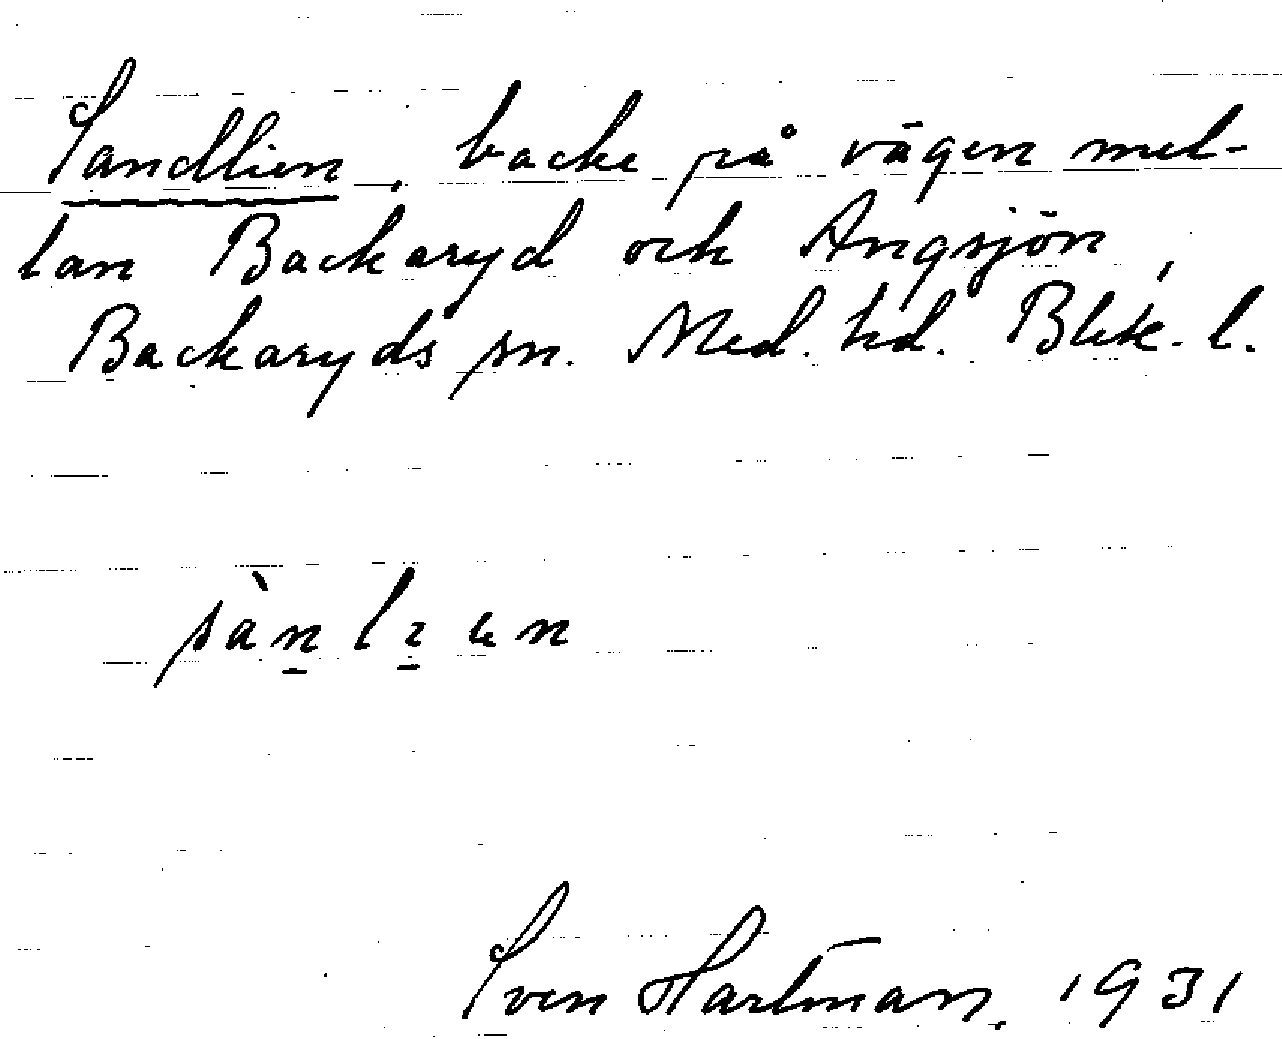 Sandlien, backe på vägen mel-
lan Backaryd och Angsjön,
Backaryds sn. Med. hd. Blek. l.
Sven Hartman, 1931